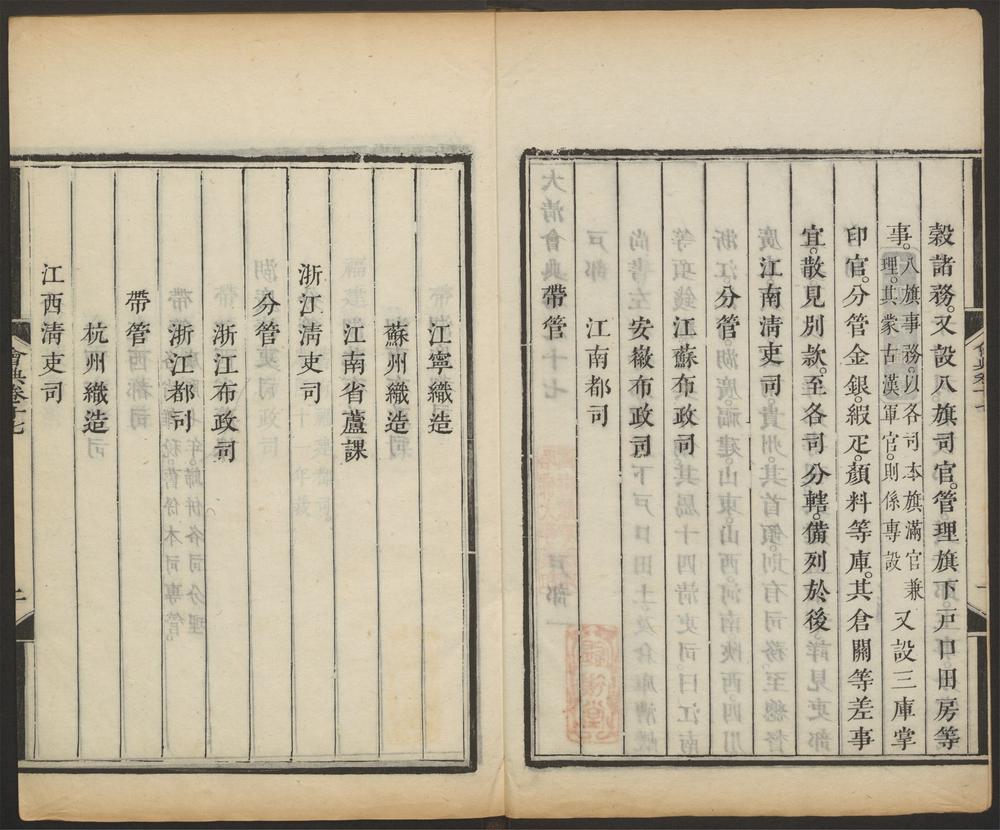 穀諸務。又設八旗司官。管理旗下戶口田房等
事。八旗事務。以各司本旗滿官兼理。其蒙古漢軍官。則係專設又設三庫掌
印官。分管金銀。緞疋。顏料等庫。其倉關等差事
宜。散見別款。至各司分轄。備列於後
江南淸吏司
分管
江蘇布政司
安徽布政司
江南都司
帶管
江寧織造
蘇州織造
江南省蘆課
浙江淸吏司
分管
浙江布政司
浙江都司
帶管
杭州織造
江西淸吏司
會典卷十七